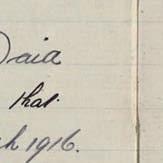 Paid
that
ch 1916.